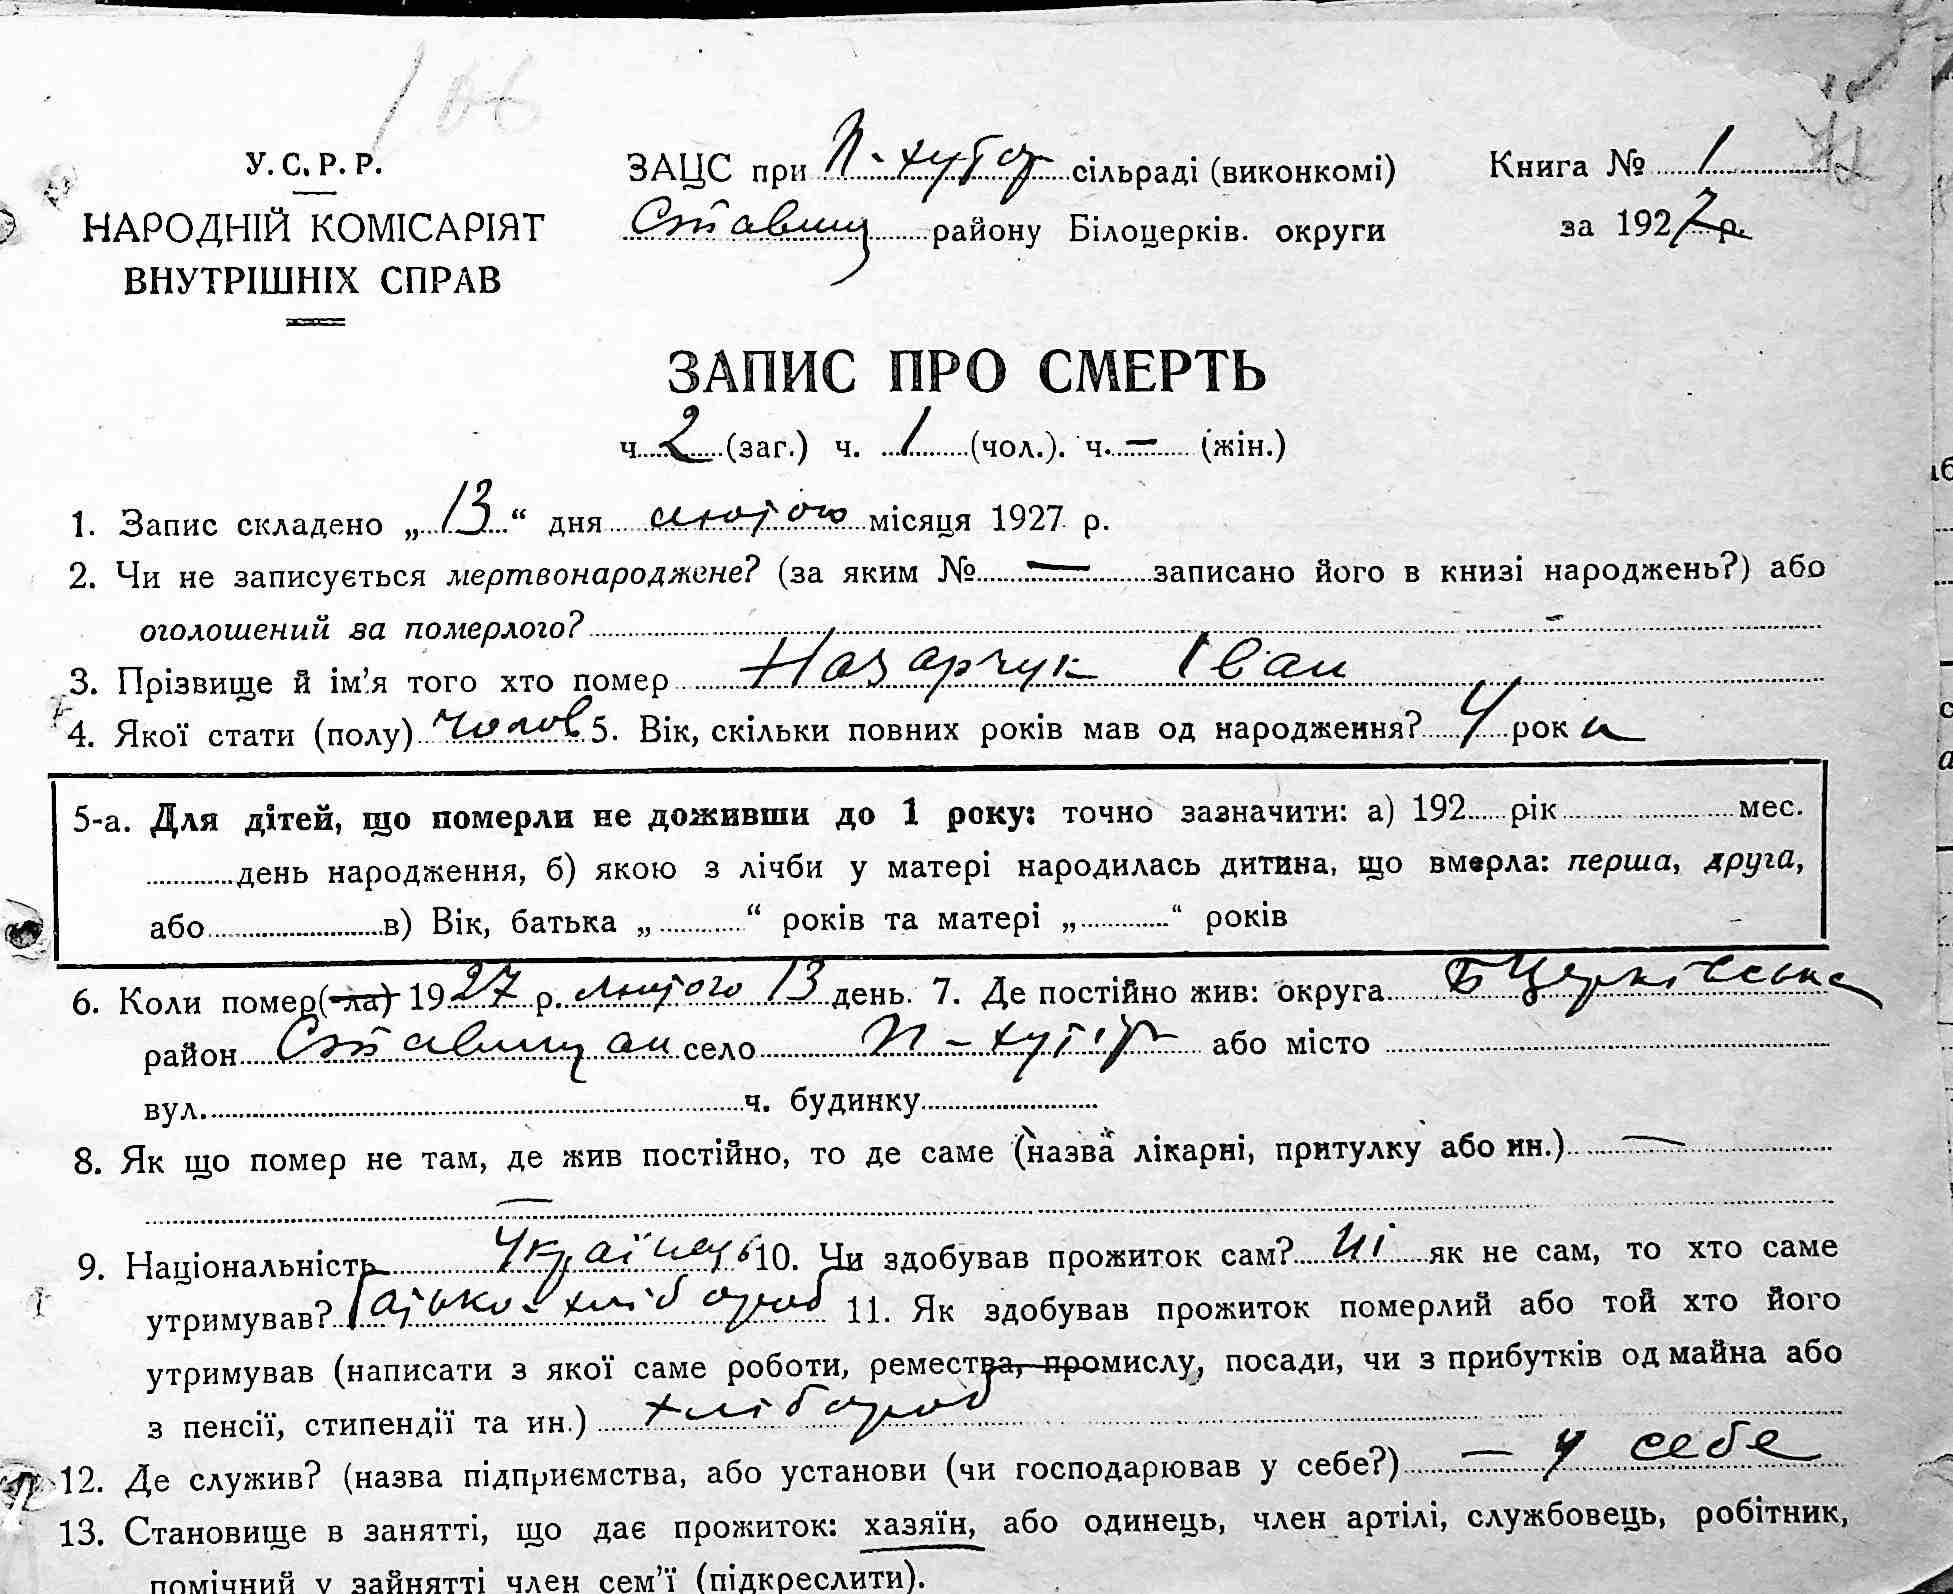 У.С.Р.Р.
НАРОДНІЙ КОМІСАРІЯТ
ВНУТРІШНІХ СПРАВ
ЗАЦС при П-хутор сільраді (виконкомі)
Ставищ району Білоцерків. округи
Книга № 1
за 1927 р.
ЗАПИС ПРО СМЕРТЬ
ч. 2 (заг.) ч. 1 (чол.). ч. — (жін.)
1. Запис складено „13“ дня лютого місяця 1927 р.
2. Чи не записується мертвонароджене? (за яким № — записано його в книзі народжень?) або
оголошений за померлого? -
3. Прізвище й ім'я того хто помер Назарчук Іван
4. Якої стати (полу) чолов 5. Вік, скільки повних років мав од народження? 4 роки
5-а. Для дітей, що померли не доживши до 1 року: точно зазначити: а) 192 рік мес.
день народження, б) якою з лічби у матері народилась дитина, що вмерла: перша, друга,
або в) Вік, батька „ “ років та матері „ “ років
6. Коли помер(-ла) 1927 р. лютого 13 день. 7. Де постійно жив: округа Б Церківська
район Ставищан село П-хутір або місто
вул. ч. будинку
8. Як що помер не там, де жив постійно, то де саме (назва лікарні, притулку або ин.) —
—
9. Національність Українець 10. Чи здобував прожиток сам? Ні як не сам, то хто саме
утримував? Батько-хлібороб 11. Як здобував прожиток померлий або той хто його
утримував (написати з якої саме роботи, ремества, промислу, посади, чи з прибутків од майна або
з пенсії, стипендії та ин.) хлібороб
12. Де служив? (назва підприємства, або установи (чи господарював у себе?) — у себе
13. Становище в занятті, що дає прожиток: хазяїн, або одинець, член артілі, службовець, робітник,
помічний у зайнятті член сем'ї (підкреслити).